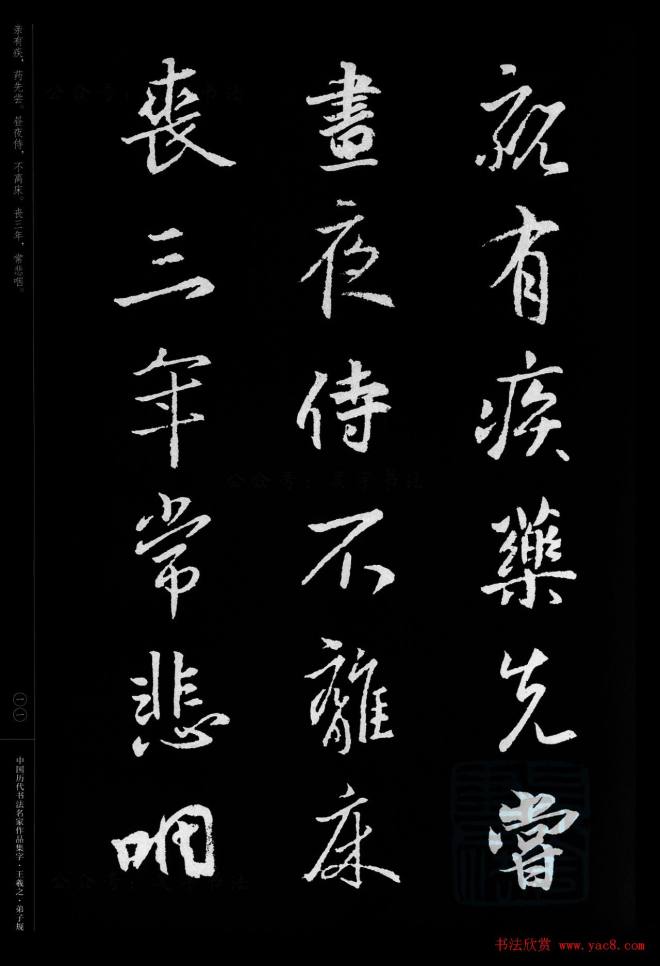 親有疾藥先嘗
晝夜侍不離床
喪三年常悲咽
亲有疾，药先尝。昼夜侍，不离床。丧三年，常悲咽。
一一
中国历代书法名家作品集字·王羲之·弟子规
书法欣赏 www.yac8.com